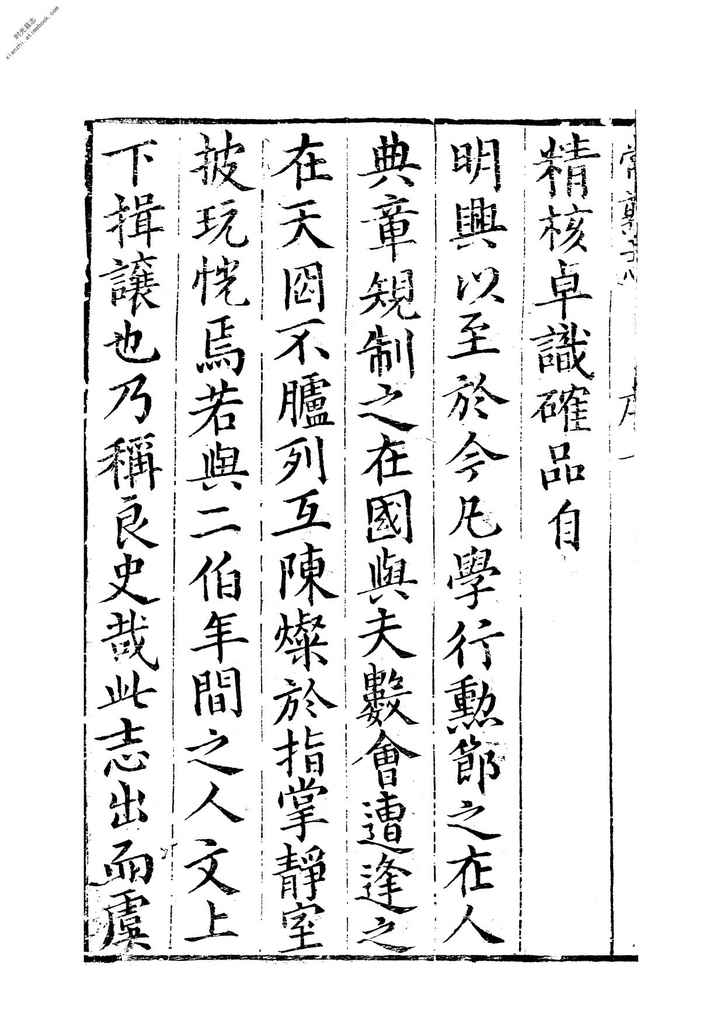 精核卓識確品自
明興以至於今凡學行勲節之在人
典章規制之在國與夫數會遭逢之
在天罔不臚列互陳燦於指掌靜室
披玩恍焉若與二伯年間之人文上
下揖讓也乃稱良史哉此志出而虞